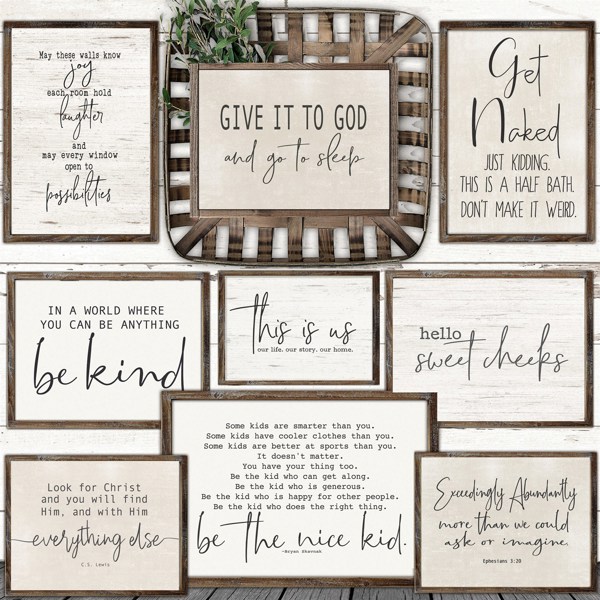 May these walls know
joy
each room hold
laughter
and
may every window
open to
possibilities
GIVE IT TO GOD
and go to sleep
Get
Naked
JUST KIDDING.
THIS IS A HALF BATH.
DON'T MAKE IT WEIRD.
IN A WORLD WHERE
YOU CAN BE ANYTHING
be kind
this is us
our life. our story. our home.
hello
sweet cheeks
Look for Christ
and you will find
Him, and with Him
everything else
C.S. Lewis
Some kids are smarter than you.
Some kids have cooler clothes than you.
Some kids are better at sports than you.
It doesn't matter.
You have your thing too.
Be the kid who can get along.
Be the kid who is generous.
Be the kid who is happy for other people.
Be the kid who does the right thing.
be the nice kid.
-Bryan Skavnak
Exceedingly Abundantly
more than we could
ask or imagine.
Ephesians 3:20